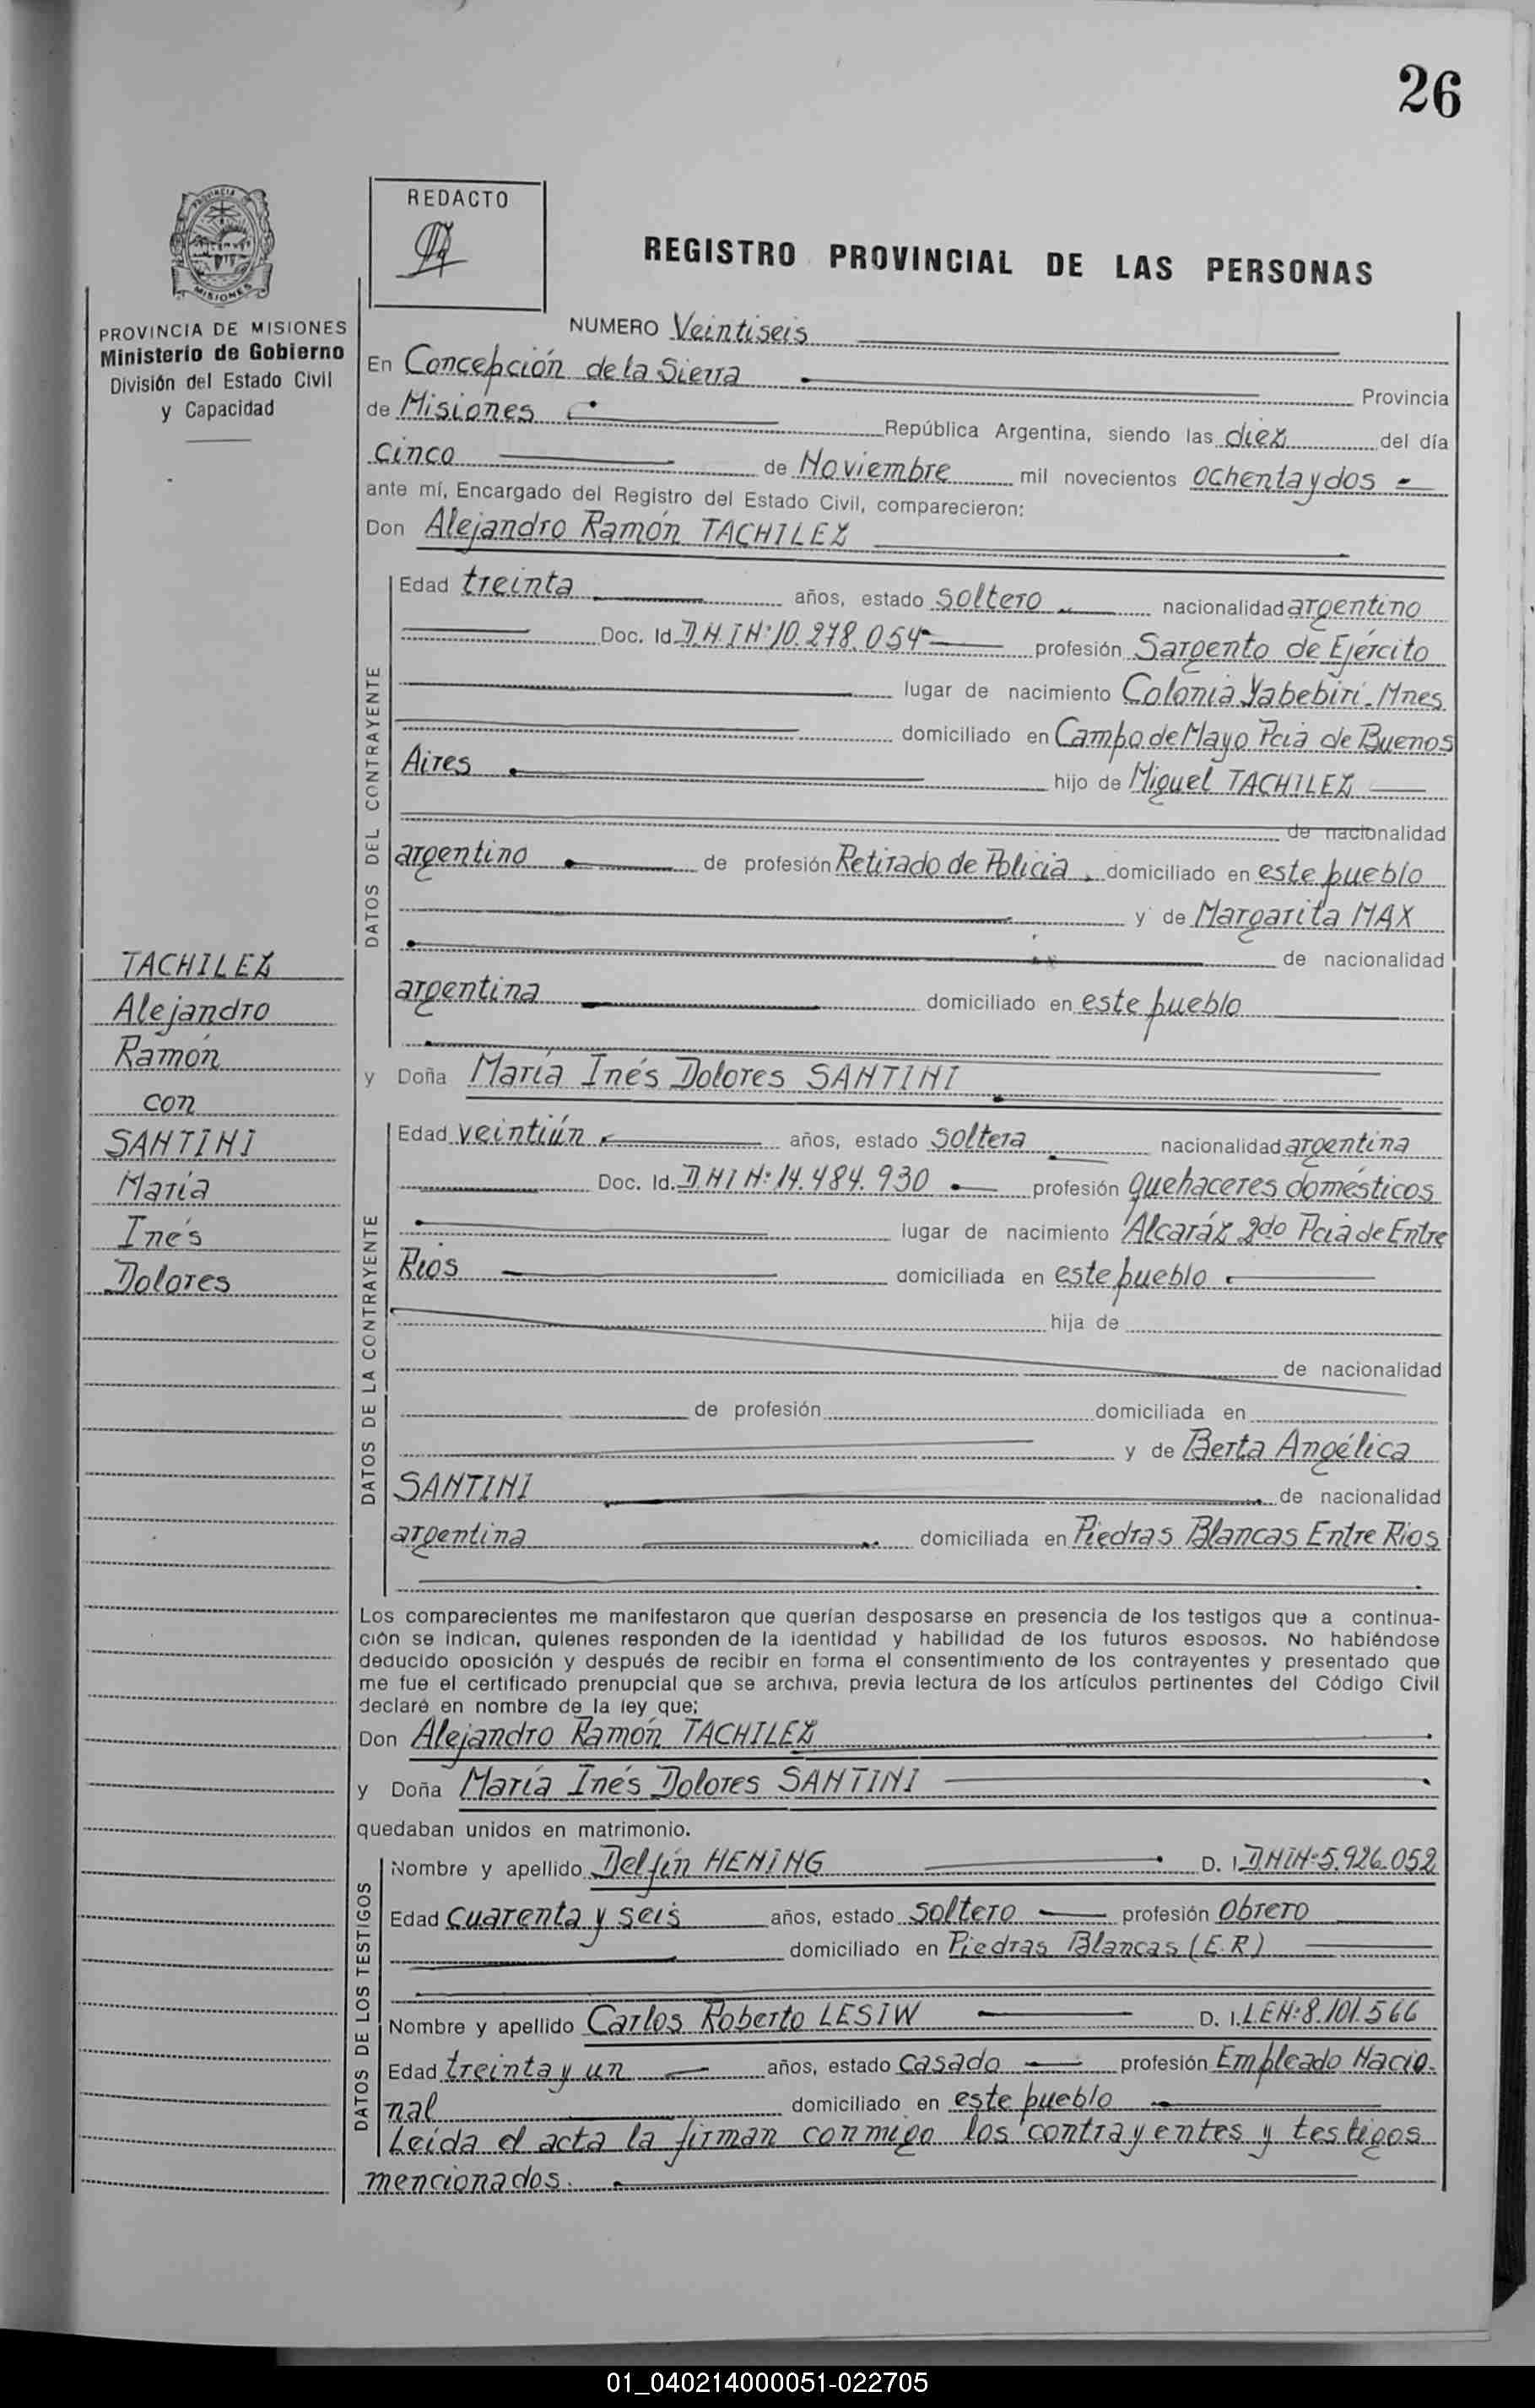 26
REDACTO
REGISTRO PROVINCIAL DE LAS PERSONAS
PROVINCIA DE MISIONES
Ministerio de Gobierno
División del Estado Civil
y Capacidad
NUMERO Veintiseis
En Concepción de la Sierra Provincia
de Misiones República Argentina, siendo las diez del día
cinco de Noviembre mil novecientos ochenta y dos
ante mí, Encargado del Registro del Estado Civil, comparecieron:
Don Alejandro Ramón TACHILEZ
DATOS DEL CONTRAYENTE
Edad treinta años, estado soltero nacionalidad argentino
Doc. Id. D.N.I Nº 10.278.054 profesión Sargento de Ejército
lugar de nacimiento Colonia Yabebirí. Mnes
domiciliado en Campo de Mayo Pcia de Buenos
Aires hijo de Miguel TACHILEZ
de nacionalidad
argentino de profesión Retirado de Policia, domiciliado en este pueblo
y de Margarita MAX
de nacionalidad
argentina domiciliado en este pueblo
TACHILEZ
Alejandro
Ramón
con
SANTINI
María
Inés
Dolores
y Doña María Inés Dolores SANTINI
DATOS DE LA CONTRAYENTE
Edad veintiún años, estado soltera nacionalidad argentina
Doc. Id. D.N I Nº 14.484.930 profesión quehaceres domésticos
lugar de nacimiento Alcaráz 2do Pcia de Entre
Rios domiciliada en este pueblo
hija de
de nacionalidad
de profesión domiciliada en
y de Berta Angélica
SANTINI de nacionalidad
argentina domiciliada en Piedras Blancas Entre Rios
Los comparecientes me manifestaron que querían desposarse en presencia de los testigos que a continua-
ción se indican, quienes responden de la identidad y habilidad de los futuros esposos. No habiéndose
deducido oposición y después de recibir en forma el consentimiento de los contrayentes y presentado que
me fue el certificado prenupcial que se archiva, previa lectura de los artículos pertinentes del Código Civil
declaré en nombre de la ley que;
Don Alejandro Ramón TACHILEZ
y Doña María Inés Dolores SANTINI
quedaban unidos en matrimonio.
DATOS DE LOS TESTIGOS
Nombre y apellido Delfín HENING D. I. DNI Nº 5.926.052
Edad cuarenta y seis años, estado soltero profesión Obrero
domiciliado en Piedras Blancas (E.R)
Nombre y apellido Carlos Roberto LESIW D. I. LE Nº 8.101.566
Edad treinta y un años, estado casado profesión Empleado Nacio-
nal domiciliado en este pueblo
Leída el acta la firman conmigo los contrayentes y testigos
mencionados.
01_040214000051-022705